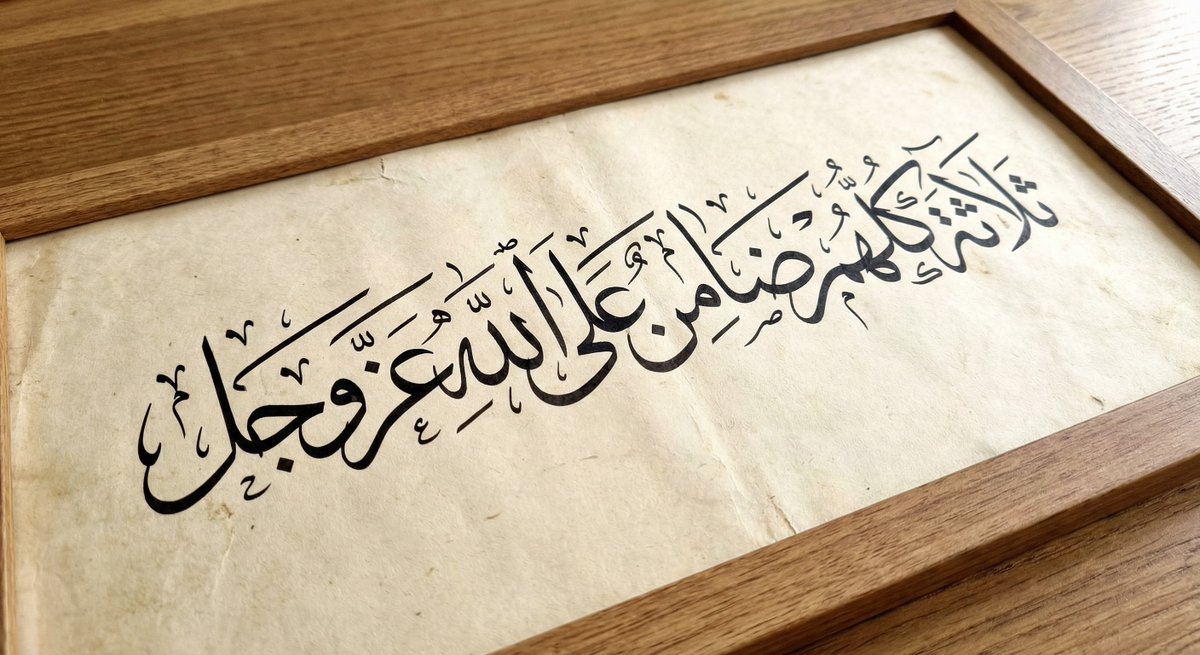 ثَلَاثَةٌ كُلُّهُمْ ضَامِنٌ عَلَى اللَّهِ عَزَّ وَجَلَّ